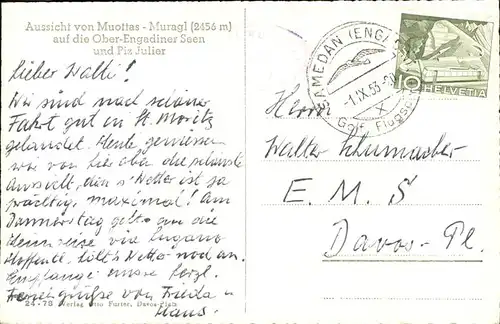 Aussicht von Muottas - Muragl (2456 m)
auf die Ober-Engadiner Seen
und Piz Julier
Lieber Walti!
Wir sind nach schöner
Fahrt gut in St. Moritz
gelandet. Heute geniessen
wir von hier oben die schönste
Aussicht, den s'Wetter ist ja
prächtig, maximal! Am
Donnerstag geht's an die
Heimreise via Lugano
Hoffentl. hält's Wetter noch an.
Empfange unsre herzl.
Feriengrüsse von Frieda u
Hans.
24-78 Verlag Otto Furter, Davos-Platz
SAMEDAN (ENG.)
-1.IX.53-
Golf Flugsp
10 HELVETIA
Herrn
Walter Schumacher
E. M. S
Davos-Pl.